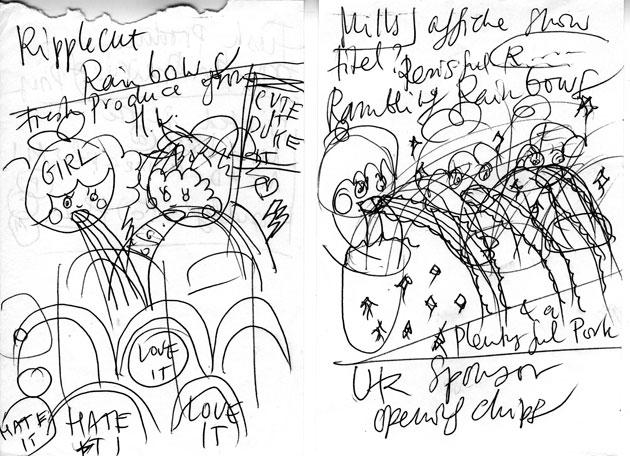 Ripplecut
Rainbows
Fresh Produce from
H.K.
CUTE
PUKE
GIRL
LOVE
IT
HATE
IT
HATE
IT
LOVE
IT
affiche show
titel?
Rambling Rainbows
& a
Plentyful Pork
UK Sponsor
opening chips